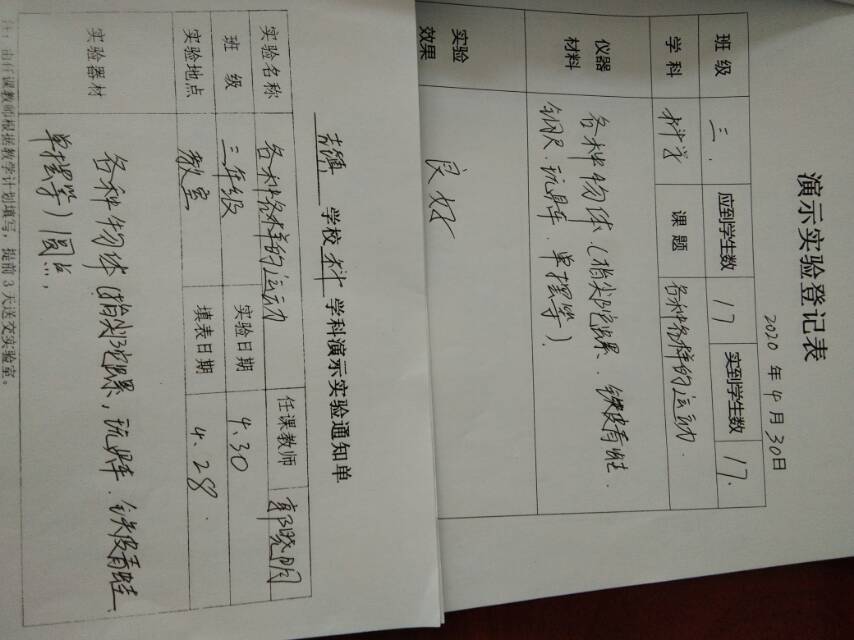 演示实验登记表
2020 年 4 月 30日
班级 三. 应到学生数 17 实到学生数 17.
学科 科学 课题 各种各样的运动.
仪器材料 各种物体(指尖陀螺、铁皮青蛙.
钢尺.玩具车.单摆等).
实验效果 良好
学校 科学 学科演示实验通知单
实验名称 各种各样的运动 任课教师 郭晓明
班级 三年级 实验日期 4.30
实验地点 教室 填表日期 4.28.
实验器材 各种物体(指尖陀螺,玩具车.铁皮青蛙
单摆等)圆点.,
注:由任课教师根据教学计划填写,提前3天送交实验室。